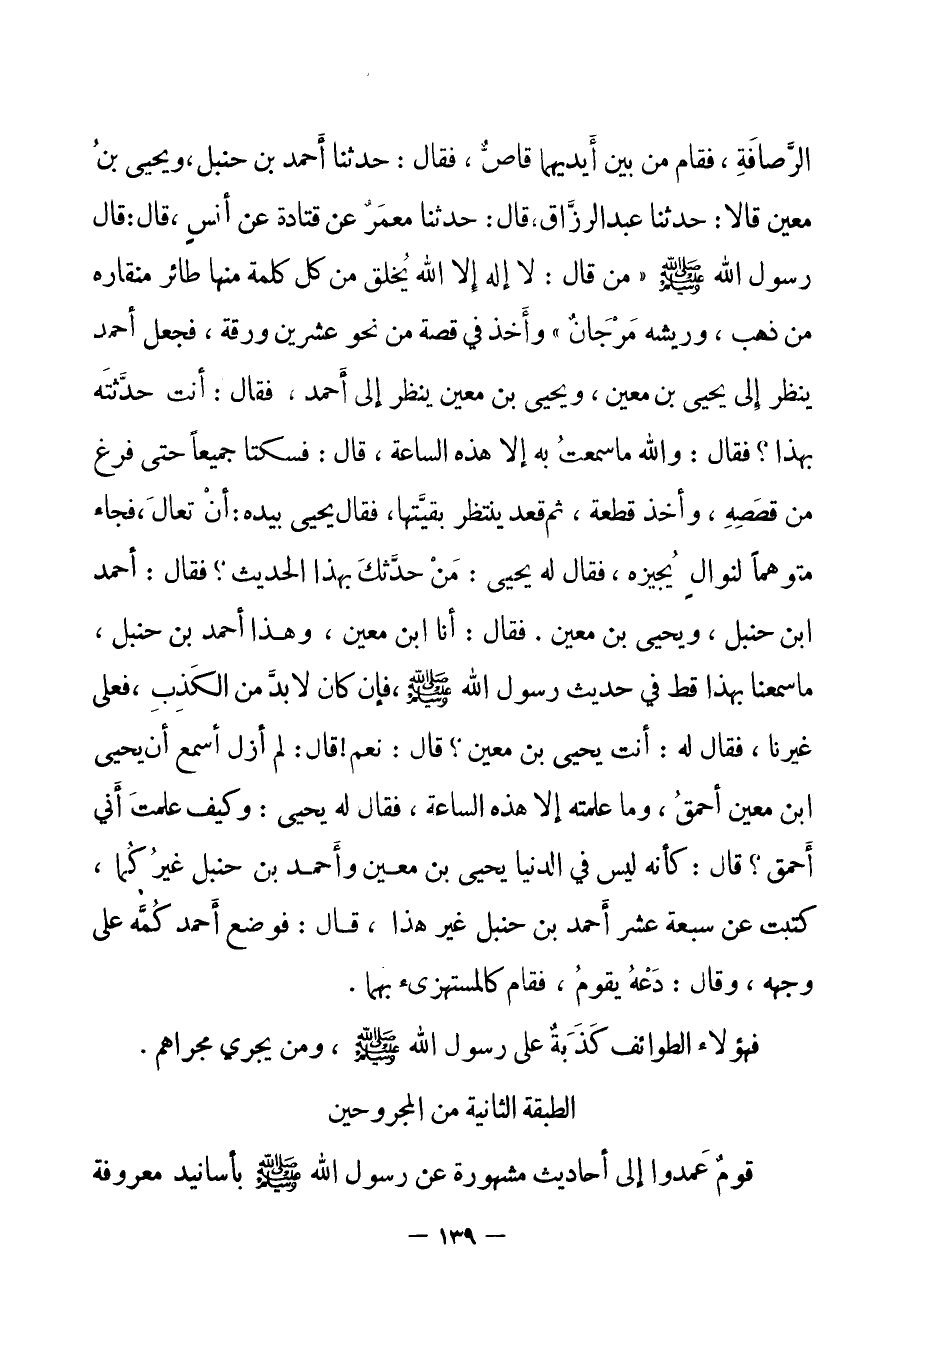 الرَّصافَةِ ، فقام من بين أَيديهما قاصٌ ، فقال : حدثنا أَحمد بن حنبل،ويحيى بنُ
معين قالا: حدثنا عبدالرزَّاق،قال: حدثنا معمَرٌ عن قتادة عن أنسٍ ،قال:قال
رسول الله ﷺ « من قال : لا إله إِلا الله يُخلق من كل كلمة منها طائر منقاره
من ذهب ، وريشه مَرْجَانٌ » وأَخذ في قصة من نحو عشرين ورقة ، فجعل أحمد
ينظر إِلى يحيى بن معين ، ويحيى بن معين ينظر إلى أَحمد ، فقال : أنت حدَّثتَه
بهذا ؟ فقال : والله ماسمعتُ به إلا هذه الساعة ، قال : فسكتا جميعاً حتى فرغ
من قصَصِهِ ، وأخذ قطعة ، ثم قعد ينتظر بقيَّتها، فقال يحيى بيده:أنْ تعالَ،فجاء
متوهماً لنوالٍ يُجيزه ، فقال له يحيى : مَنْ حدَّثكَ بهذا الحديث ؟ فقال : أحمد
ابن حنبل ، ويحيى بن معين . فقال : أنا ابن معين ، وهذا أحمد بن حنبل ،
ماسمعنا بهذا قط في حديث رسول الله ﷺ ،فإن كان لابدَّ من الكَذِبِ ،فعلى
غيرنا ، فقال له : أنت يحيى بن معين ؟ قال : نعم!قال: لم أزل أسمع أن يحيى
ابن معين أحمقُ ، وما علمته إلا هذه الساعة ، فقال له يحيى : وكيف علمتَ أَني
أَحمق ؟ قال : كأنه ليس في الدنيا يحيى بن معين وأَحمد بن حنبل غيرُكُما ،
كتبت عن سبعة عشر أَحمد بن حنبل غير هذا ، قال : فوضع أَحمد كُمَّه على
وجهه ، وقال : دَعْهُ يقومُ ، فقام كالمستهزىء بهما .
فهؤلاء الطوائف كَذَبَةٌ على رسول الله ﷺ ، ومن يجري مجراهم .
الطبقة الثانية من المجروحين
قومٌ عَمدوا إلى أحاديث مشهورة عن رسول الله ﷺ بأسانيد معروفة
— ١٣٩ —